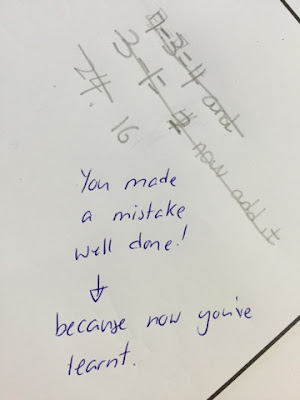 7-3=4 and
3-1= now add it
24. 16
You made
a mistake
well done!
because now you've
learnt.